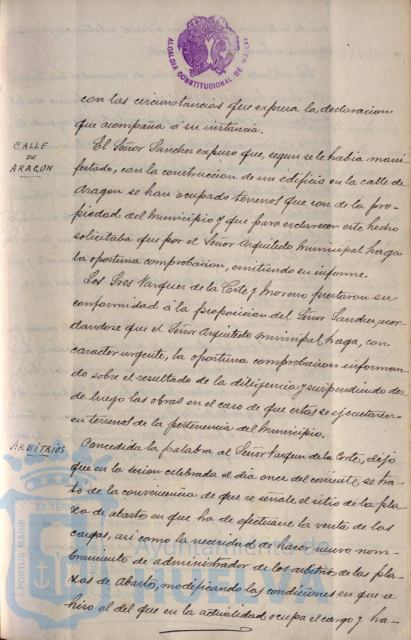 ALCALDIA CONSTITUCIONAL DE HUELVA
con las circunstancias que expresa la declaracion
que acompaña á su instancia.
CALLE
DE
ARAGON
El Señor Sanchez expuso que, segun se le habia mani-
festado, con la construccion de un edificio en la calle de
Aragon se han ocupado terrenos que son de la pro-
piedad del Municipio y que para esclarecer este hecho
solicitaba que por el Señor Arquitecto Municipal haga
la oportuna comprobacion, emitiendo su informe.
Los Sres Vazquez de la Corte y Moreno prestaron su
conformidad á la proposicion del Señor Sanchez, acor-
dandose que el Señor Arquitecto municipal haga, con
caracter urgente, la oportuna comprobacion informan-
do sobre el resultado de la diligencia y suspendiendo des-
de luego las obras en el caso de que estas se ejecutaren
en terrenos de la pertenencia del Municipio.
ARBITRIOS
Concedida la palabra al Señor Vazquez de la Corte, dijo
que en la sesion celebrada el dia once del corriente, se tra-
tó de la conveniencia de que se señale el sitio de la pla-
za de abastos en que ha de efectuarse la venta de las
cargas, asi como la necesidad de hacer nuevo nom-
bramiento de administrador de los arbitrios de las pla-
zas de Abasto, modificando las condiciones en que se
hizo el del que en la actualidad ocupa el cargo y ha-
PORTUS MARIS ET TERRAE
Ayuntamiento de
HUELVA